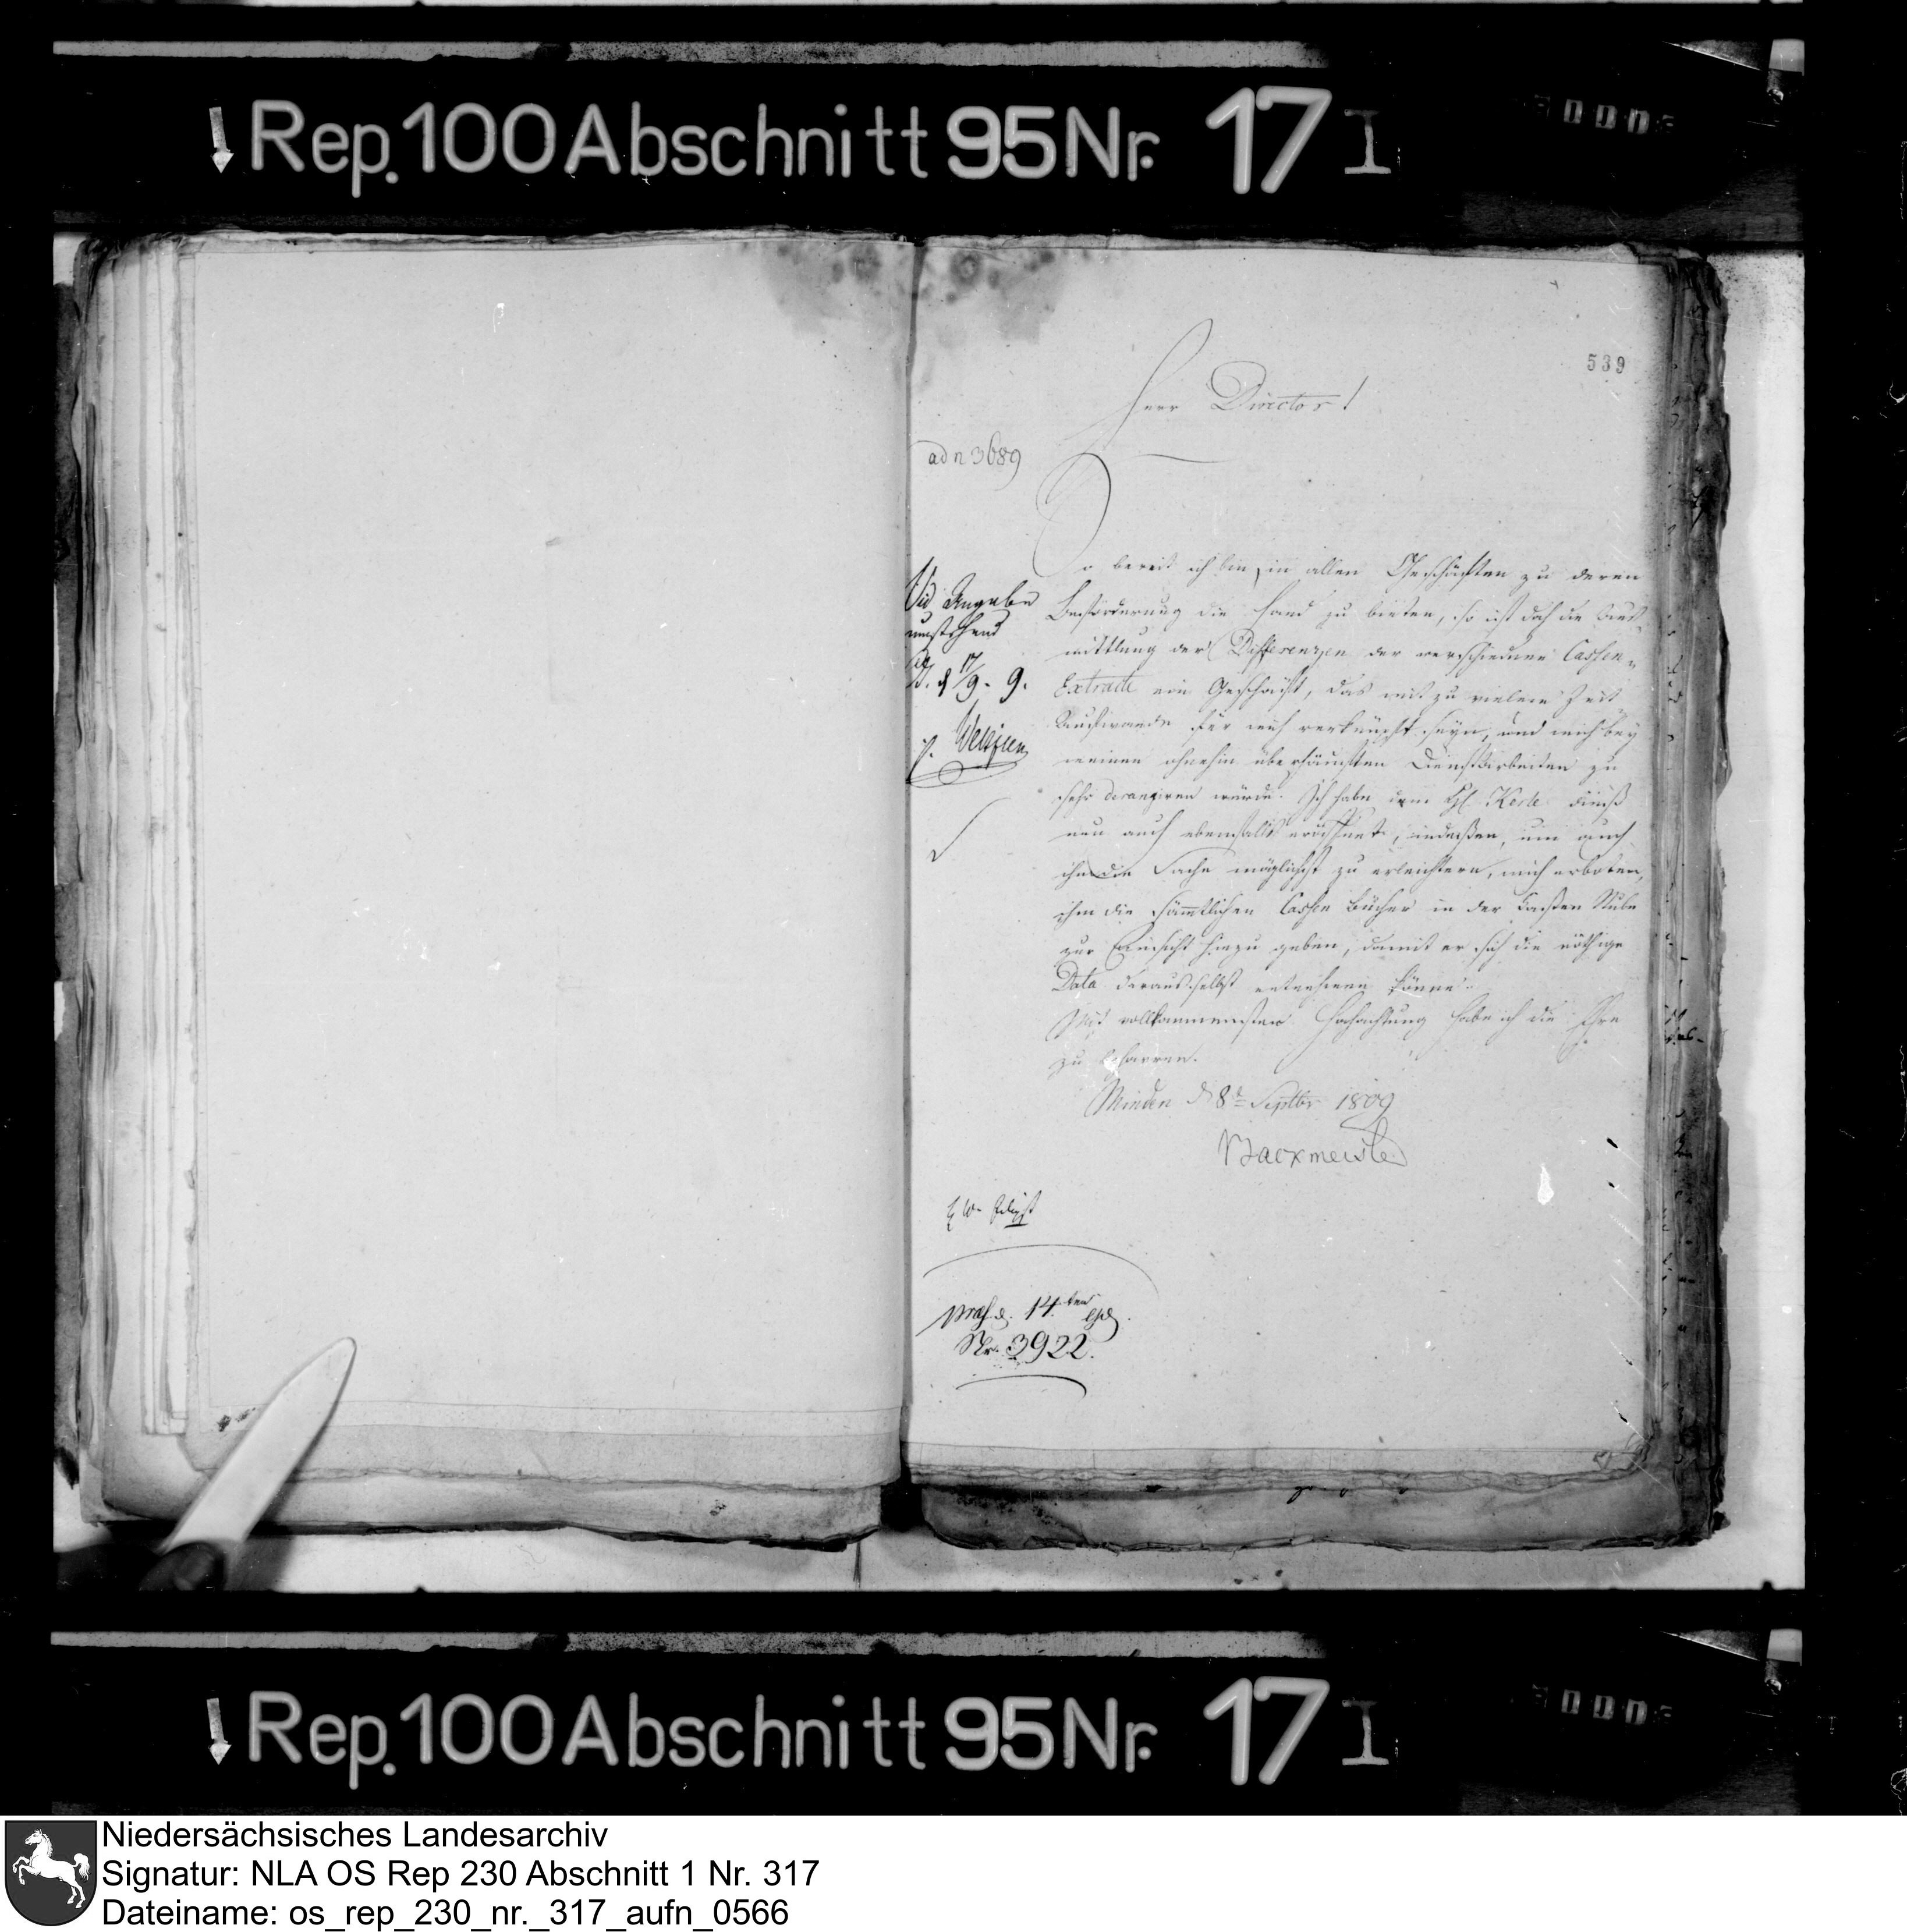 Rep. 100 Abschnitt 95 Nr. 17 I
539
Herr Director!
ad n 3689
So bereit ich bin, in allen Geschäften zu deren
Beförderung die Hand zu bieten, so ist doch die Aus-
mittlung der Differenzen der verschiedenen Cassen-
Extracte ein Geschäft, das mit zu vielem Zeit
Aufwande für mich verknüpft seyn, und mich bey
meinen ohnehin überhäuften Dienstarbeiten zu
sehr derangiren würde. Ich habe dem H. Kerle dieß
nun auch ebenfalls eröffnet, indeßen, um auch
ihm die Sache möglichst zu erleichtern, mich erboten,
ihm die sämtlichen Cassen Bücher in der Cassen Stube
zur Einsicht hinzu geben, damit er sich die nöthige
Data daraus selbst entnehmen könne.
Mit vollkommenster Hochachtung habe ich die Ehre
zu beharren.
Minden d 8t Septbr 1809
Backmeister
Vid Angabe
umstehend
17/9. 9.
praes. d. 14ten ejd.
Nr. 3922.
Rep. 100 Abschnitt 95 Nr. 17 I
Niedersächsisches Landesarchiv
Signatur: NLA OS Rep 230 Abschnitt 1 Nr. 317
Dateiname: os_rep_230_nr._317_aufn_0566